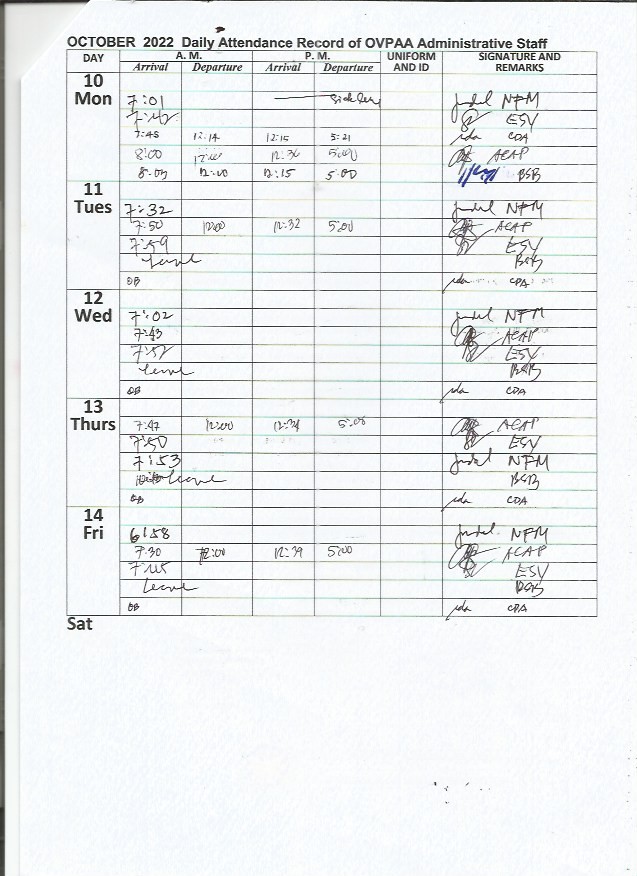 OCTOBER 2022 Daily Attendance Record of OVPAA Administrative Staff
DAY A. M. P. M. UNIFORM AND ID SIGNATURE AND REMARKS
Arrival Departure Arrival Departure
10 Mon
7:01 NFM
7:42 ESY
7:45 12:14 12:15 5:21 CDA
8:00 12:36 5:00 ACAP
8:03 12:10 12:15 5:00 BSB
11 Tues
7:32 NFM
7:50 12:00 12:32 5:00 ACAP
7:59 ESY
Leave BSB
OB CDA
12 Wed
7:02 NFM
7:43 ACAP
7:52 ESY
Leave BSB
OB CDA
13 Thurs
7:47 12:00 12:34 5:00 ACAP
7:50 ESY
7:53 NFM
Leave BSB
OB CDA
14 Fri
6:58 NFM
7:30 12:00 12:39 5:00 ACAP
ESY
Leave BSB
OB CDA
Sat